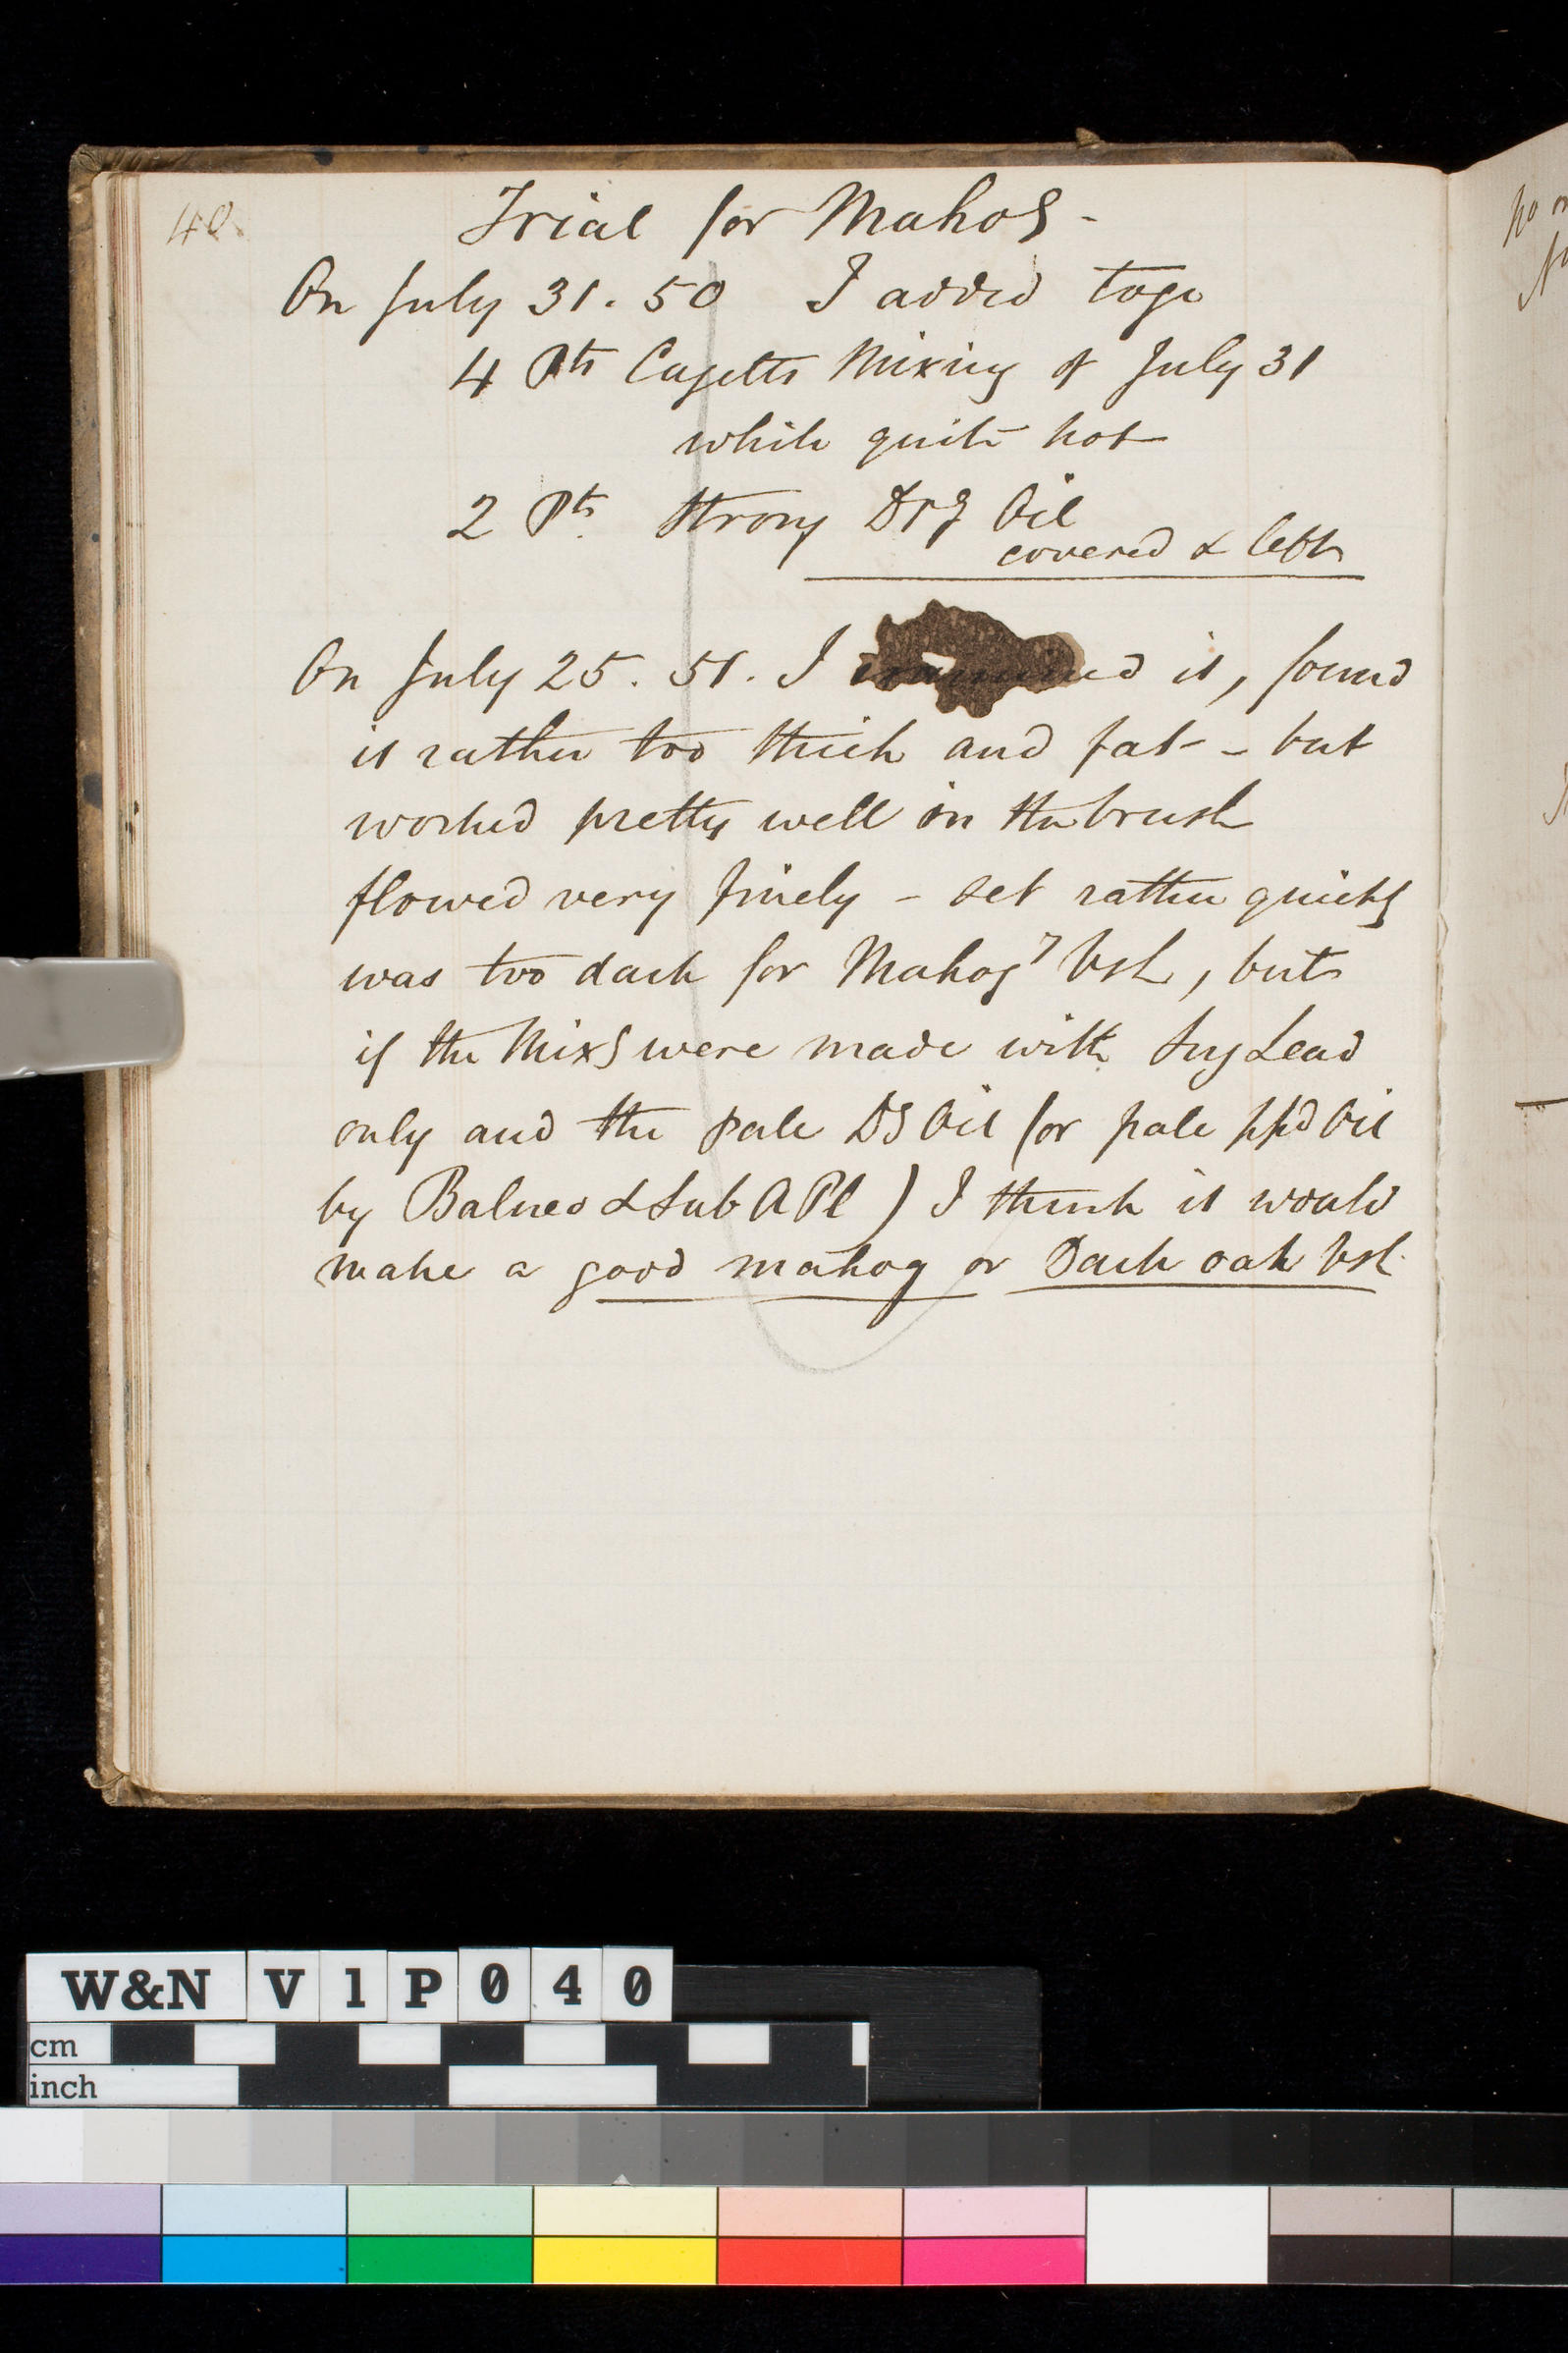 40.
Trial for Mahog -
On July 31. 50 I added toge
4 Pts Cagelts Mixing of July 31
while quite hot
2 Pts Strong Drg Oil
covered & left
On July 25. 51. I examined it, found
it rather too thick and fat - but
worked pretty well in the brush
flowed very finely - set rather quickly
was too dark for Mahogy Vsh, but
if the Mixg were made with Sug Lead
only and the pale Dg Oil (or pale ppd Oil
by Balneo & Sub A Pl) I think it would
make a good mahog or Dark oak Vsh.
W&N V1P040
cm
inch